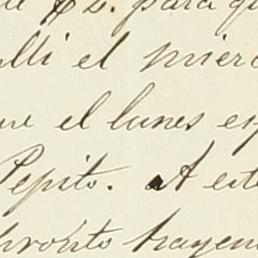 para qu
alli el mierc
que el lunes es
Pepito. A este
pronto trayen